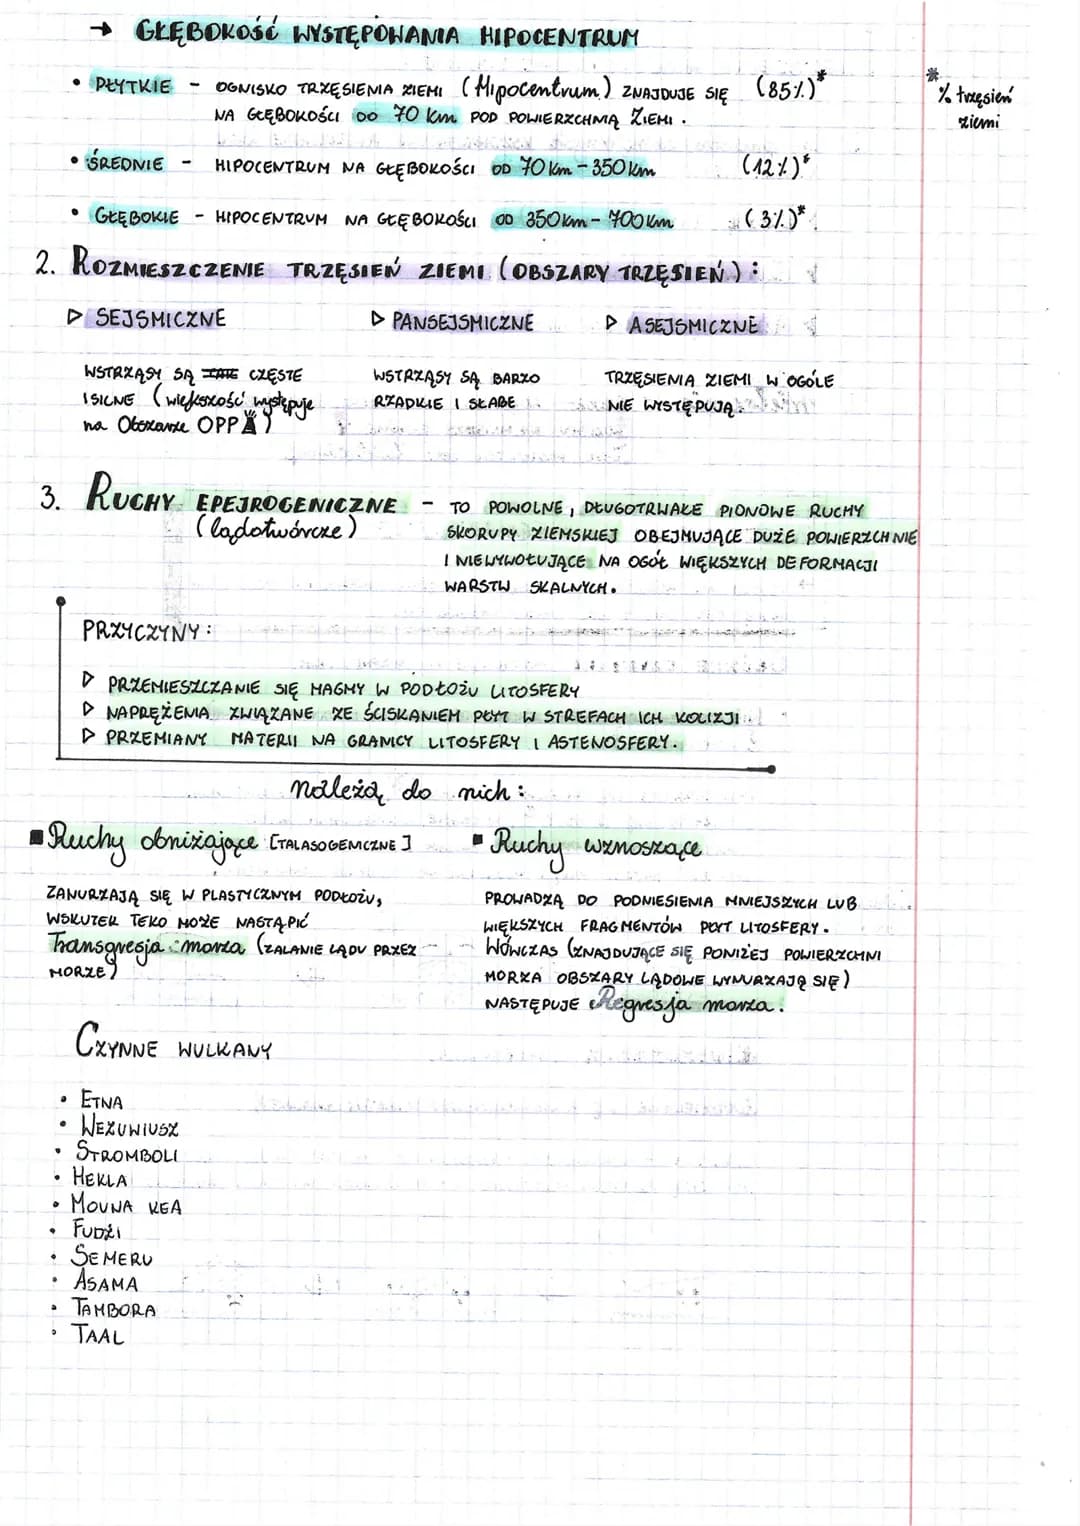 → GŁĘBOKOŚĆ WYSTĘPOWANIA HIPOCENTRUM
• PŁYTKIE - OGNISKO TRZĘSIENIA ZIEMI (Hipocentrum) ZNAJDUJE SIĘ (85%)*
NA GŁĘBOKOŚCI DO 70 km POD POWIERZCHNIĄ ZIEMI.
* % trzęsień
ziemi
• ŚREDNIE - HIPOCENTRUM NA GŁĘBOKOŚCI OD 70 km - 350 km (12%)*
• GŁĘBOKIE - HIPOCENTRUM NA GŁĘBOKOŚCI OD 350 km - 700 km (3%)*
2. ROZMIESZCZENIE TRZĘSIEŃ ZIEMI (OBSZARY TRZĘSIEŃ):
▷ SEJSMICZNE ▷ PANSEJSMICZNE ▷ ASEJSMICZNE
WSTRZĄSY SĄ CZĘSTE
I SILNE (większość występuje
na Obszarze OPP)
WSTRZĄSY SĄ BARZO
RZADKIE I SŁABE
TRZĘSIENIA ZIEMI W OGÓLE
NIE WYSTĘPUJĄ.
3. RUCHY EPEJROGENICZNE - TO POWOLNE, DŁUGOTRWAŁE PIONOWE RUCHY
(lądotwórcze) SKORUPY ZIEMSKIEJ OBEJMUJĄCE DUŻE POWIERZCHNIE
I NIEWYWOŁUJĄCE NA OGÓŁ WIĘKSZYCH DEFORMACJI
WARSTW SKALNYCH.
PRZYCZYNY:
▷ PRZEMIESZCZANIE SIĘ MAGMY W PODŁOŻU LITOSFERY
▷ NAPRĘŻENIA ZWIĄZANE ZE ŚCISKANIEM PŁYT W STREFACH ICH KOLIZJI.
▷ PRZEMIANY MATERII NA GRANICY LITOSFERY I ASTENOSFERY.
należą do nich:
▪ Ruchy obniżające [TALASOGENICZNE]
ZANURZAJĄ SIĘ W PLASTYCZNYM PODŁOŻU,
WSKUTEK TEKO MOŻE NASTĄPIĆ
Transgresja morza (ZALANIE LĄDU PRZEZ
MORZE)
▪ Ruchy wznoszące
PROWADZĄ DO PODNIESIENIA MNIEJSZYCH LUB
WIĘKSZYCH FRAGMENTÓW PŁYT LITOSFERY.
WÓWCZAS (ZNAJDUJĄCE SIĘ PONIŻEJ POWIERZCHNI
MORZA OBSZARY LĄDOWE WYNURZAJĄ SIĘ)
NASTĘPUJE Regresja morza.
CZYNNE WULKANY
• ETNA
• WEZUWIUSZ
• STROMBOLI
• HEKLA
• MOUNA KEA
• FUDŻI
• SEMERU
• ASAMA
• TAMBORA
• TAAL